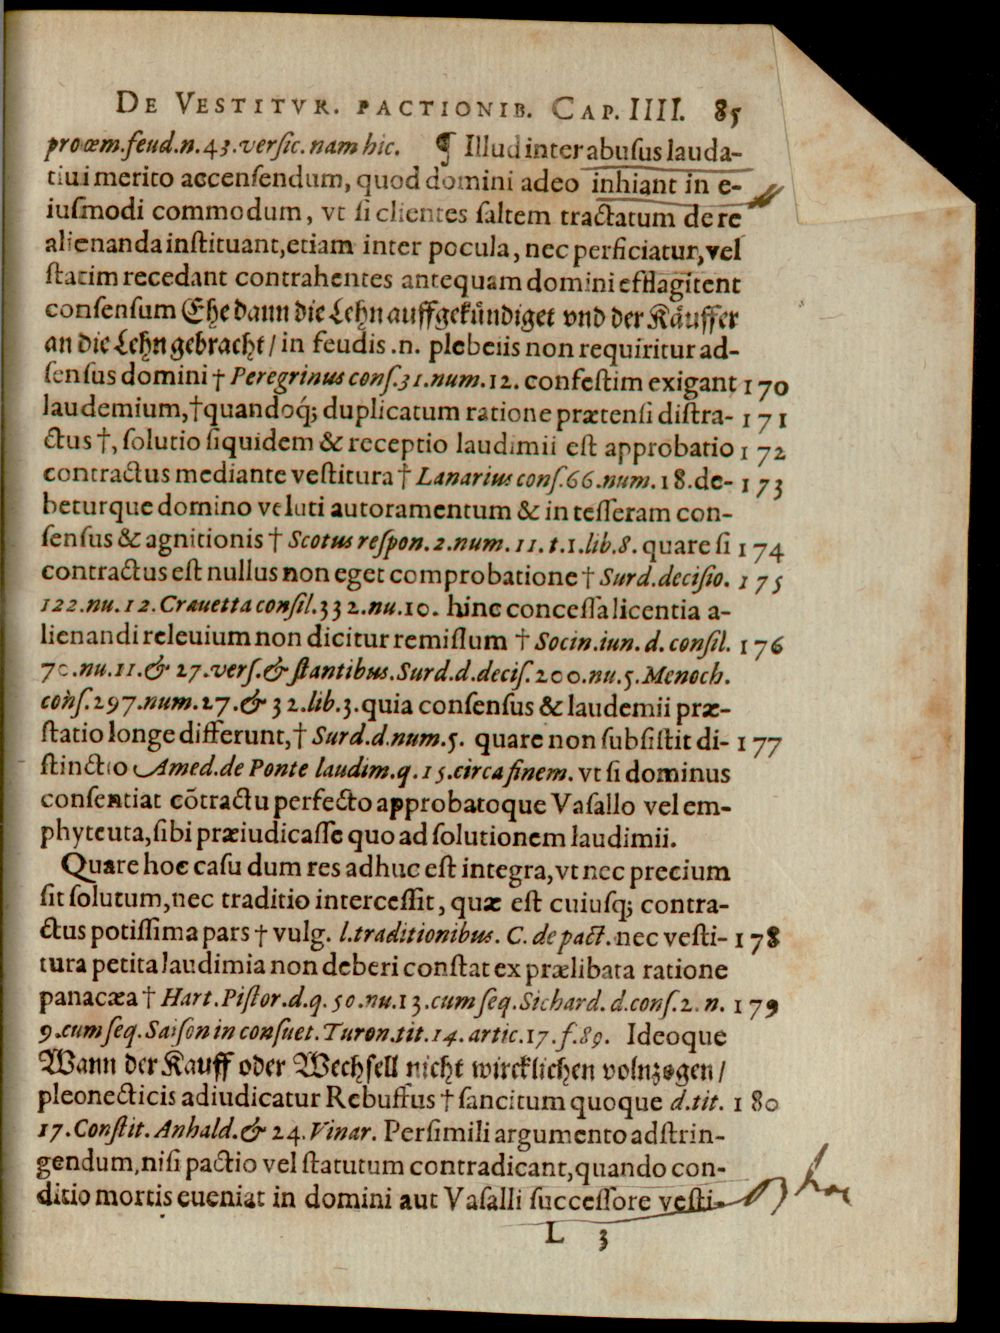 DE VESTITVR. PACTIONIB. CAP. IIII. 85
proœm.feud.n.43.versic.nam hic. ¶ Illud inter abusus lauda-
tiui merito accensendum, quod domini adeo inhiant in e-
iusmodi commodum, vt si clientes saltem tractatum de re
alienanda instituant, etiam inter pocula, nec perficiatur, vel
statim recedant contrahentes antequam domini efflagitent
consensum Ehe dann die Lehn auffgekündiget vnd der Käuffer
an die Lehn gebracht / in feudis .n. plebeiis non requiritur ad-
sensus domini † Peregrinus cons.31.num.12. confestim exigant 170
laudemium, † quandoq; duplicatum ratione prætensi distra- 171
ctus †, solutio siquidem & receptio laudimii est approbatio 172
contractus mediante vestitura † Lanarius cons.66.num.18. de- 173
beturque domino veluti autoramentum & in tesseram con-
sensus & agnitionis † Scotus respon.2.num.11.t.1.lib.8. quare si 174
contractus est nullus non eget comprobatione † Surd.decisio. 175
122.nu.12. Crauetta consil.332.nu.10. hinc concessa licentia a-
lienandi releuium non dicitur remissum † Socin.iun.d.consil. 176
70.nu.11.& 27.vers.& stantibus. Surd.d.decis.200.nu.5. Menoch.
cons.297.num.27.& 32.lib.3. quia consensus & laudemii præ-
statio longe differunt, † Surd.d.num.5. quare non subsistit di- 177
stinctio Amed.de Ponte laudim.q.15.circa finem. vt si dominus
consentiat cōtractu perfecto approbatoque Vasallo vel em-
phyteuta, sibi præiudicasse quo ad solutionem laudimii.
Quare hoc casu dum res adhuc est integra, vt nec precium
sit solutum, nec traditio intercessit, quæ est cuiusq; contra-
ctus potissima pars † vulg. l.traditionibus. C. de pact. nec vesti- 178
tura petita laudimia non deberi constat ex prælibata ratione
panacæa † Hart.Pistor.d.q.50.nu.13.cum seq. Sichard.d.cons.2.n. 179
9.cum seq. Saison in consuet.Turon.tit.14.artic.17.f.89. Ideoque
Wann der Kauff oder Wechsell nicht wircklichen volnzogen /
pleonecticis adiudicatur Rebuffus † sancitum quoque d.tit. 180
17.Constit.Anhald.& 24.Vinar. Persimili argumento adstrin-
gendum, nisi pactio vel statutum contradicant, quando con-
ditio mortis eueniat in domini aut Vasalli successore vesti-
L 3